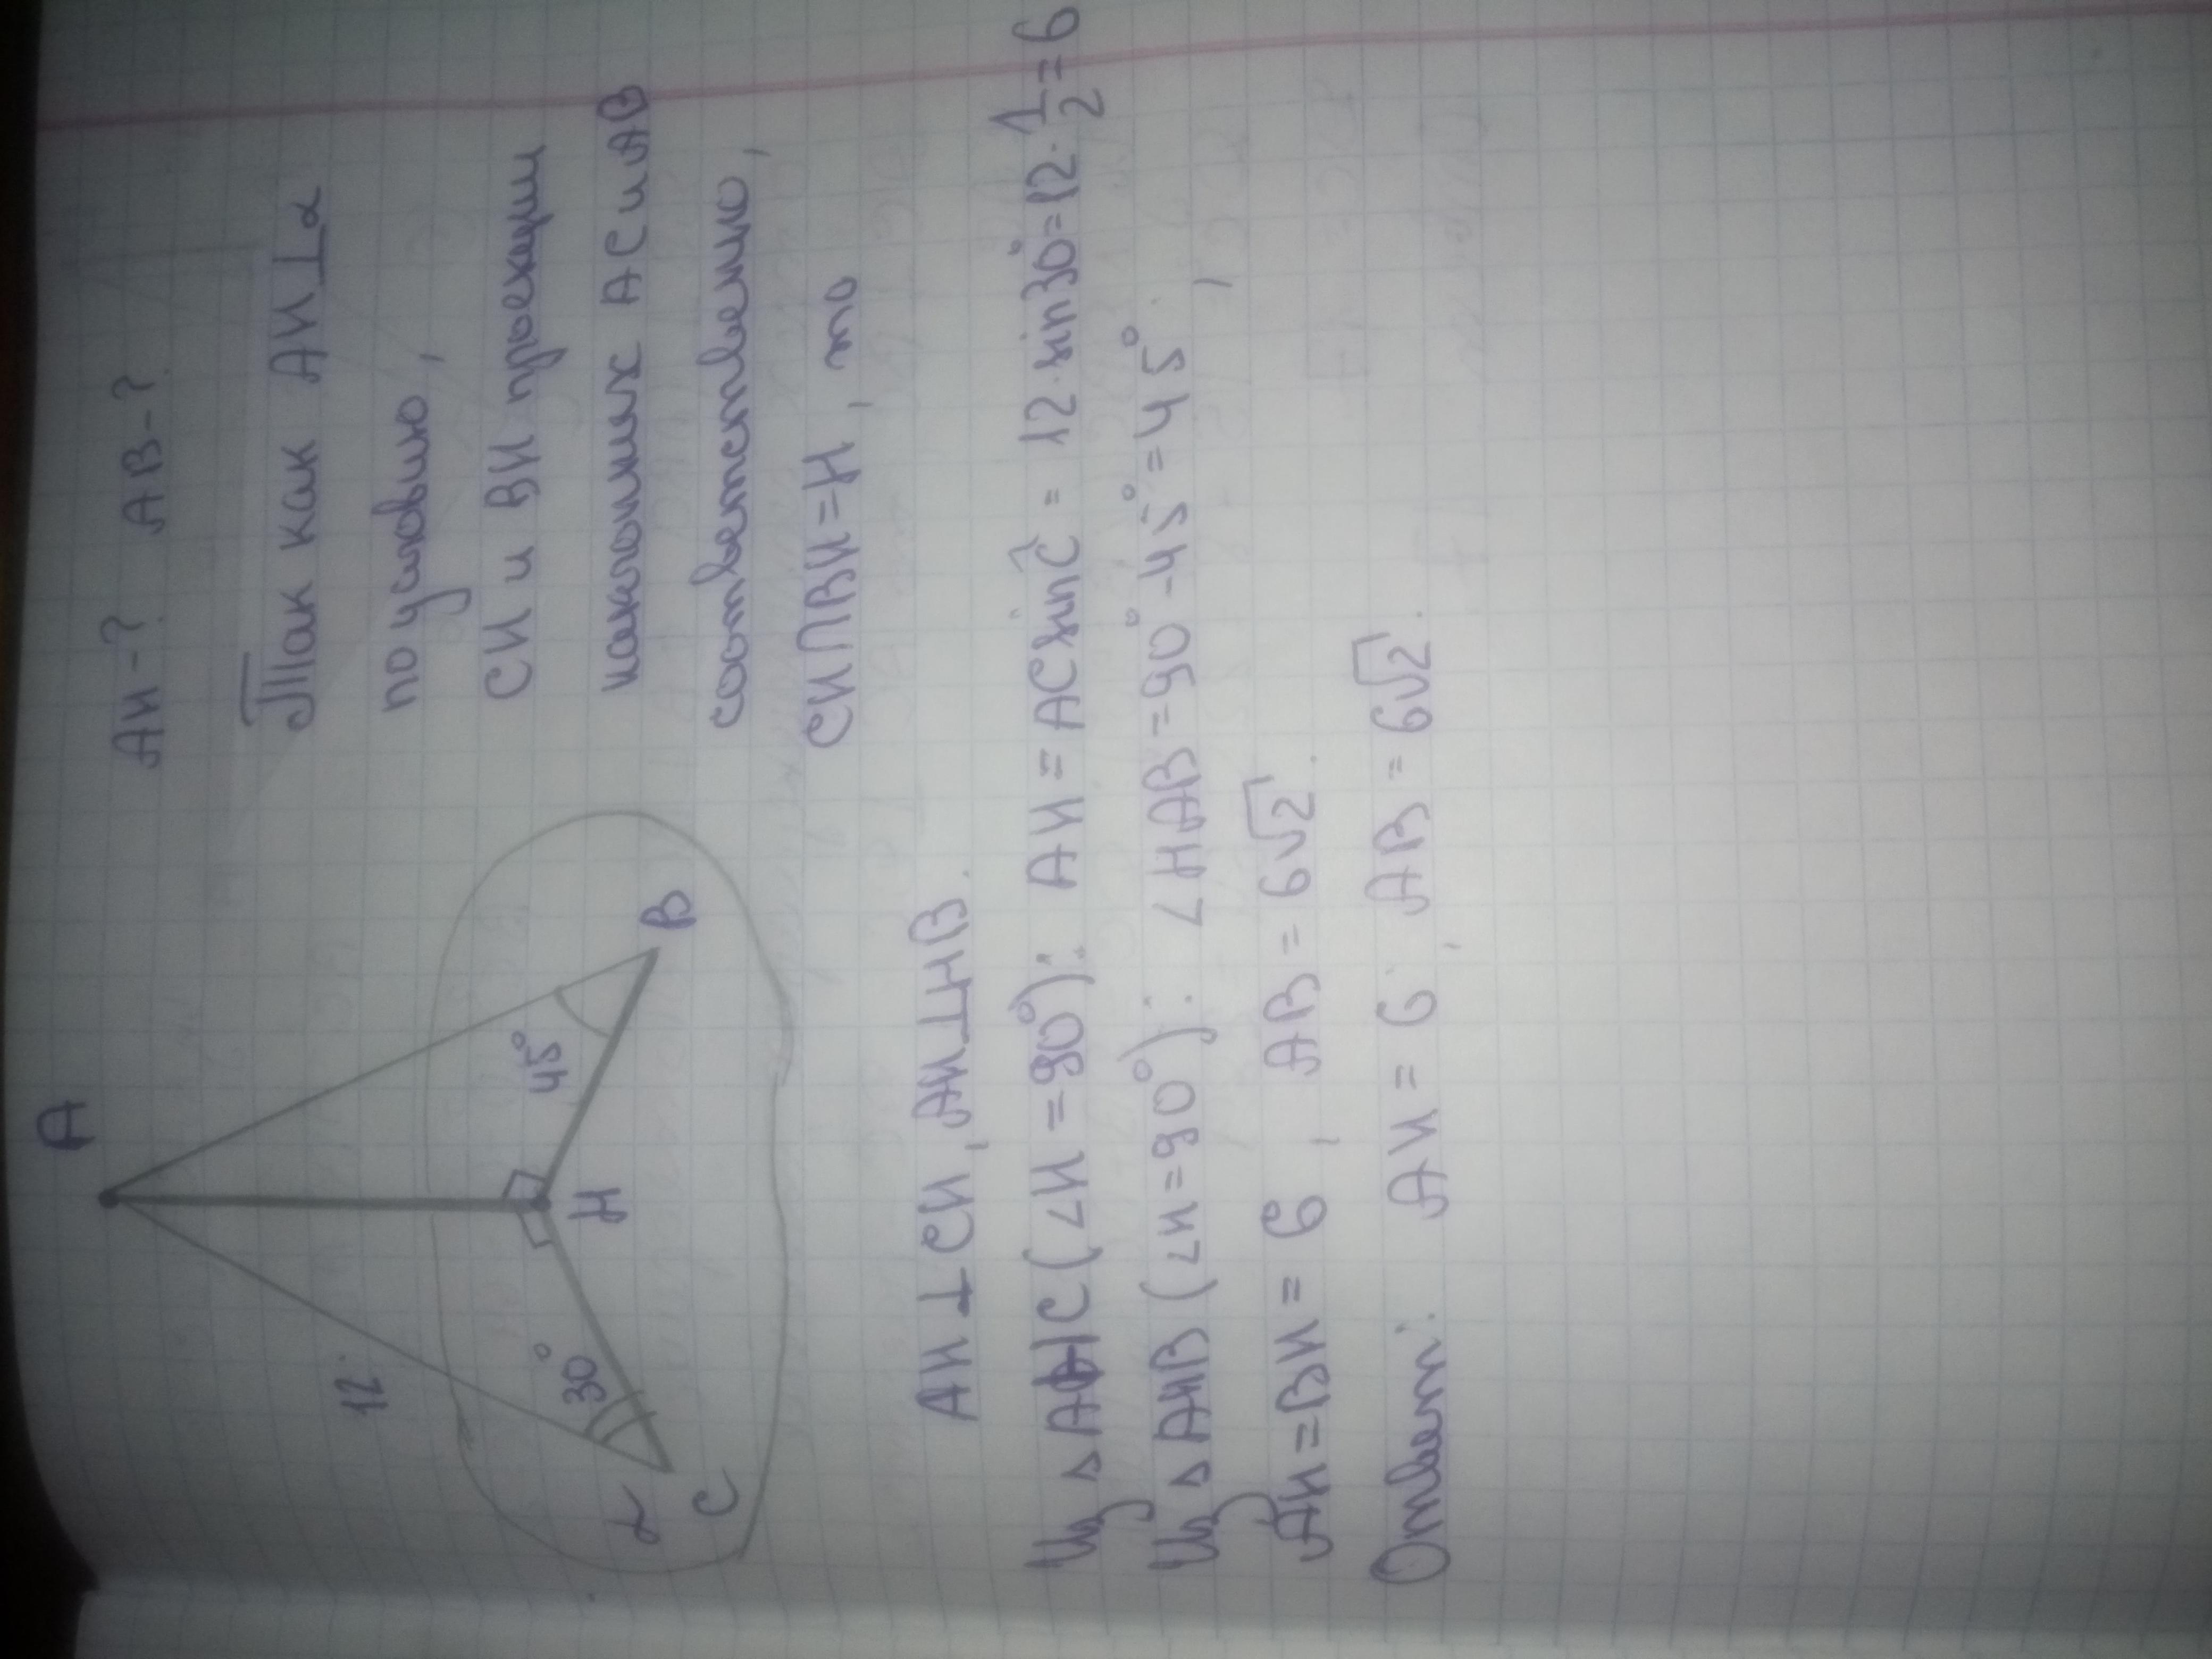 A
12
30°
45°
H
α
C
B
AH-? AB-?
Так как AH⊥α
по условию,
CH и BH проекции
наклонных AC и AB
соответственно,
CH∩BH=H, то
AH⊥CH, AH⊥HB.
Из ΔAHC (∠H=90°): AH=ACsinĈ=12·sin30°=12·1/2=6
Из ΔAHB (∠H=90°): ∠HAB=90°-45°=45°,
AH=BH=6, AB=6√2.
Ответ: AH=6, AB=6√2.